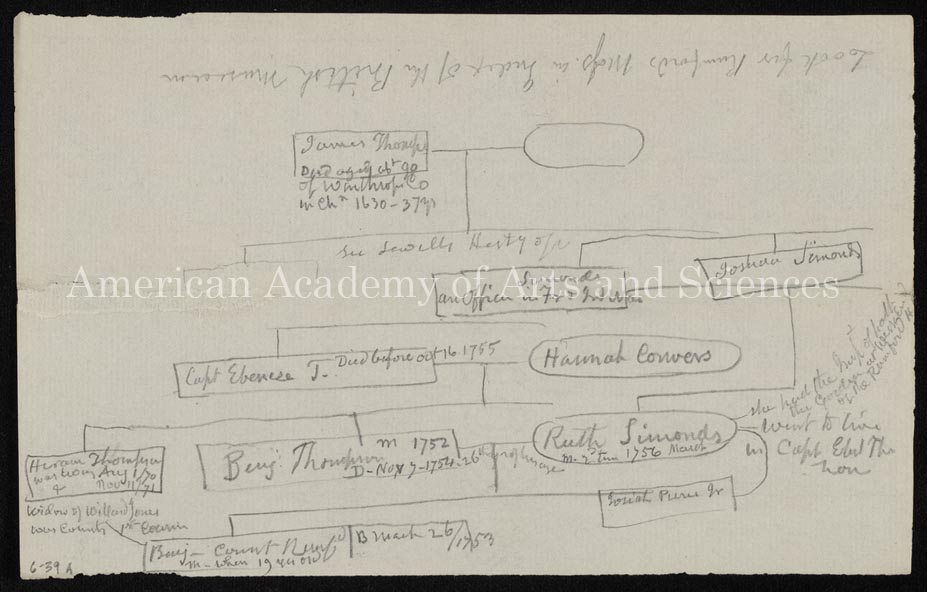 Look for Rumford's Mss. in Index of the British Museum
James Thomps
Died aged abt 90
of Winthrop Co
in Chn 1630-37 yrs
See Sewells Histy of
American Academy of Arts and Sciences
Simonds
an Officer in Fr & Ind War
Joshua Simonds
Capt Ebeneze T.
Died before Oct 16. 1755
Hannah Convers
she had the
Ruth Simonds
m. 2d time 1756 March
went to live
in Capt Ebel Tho
Benj. Thompson
m 1752
D- Nov 7-1754. 26th yr of his age
Hiram Thompson
was living Aug
& Nov 11/71
Josiah Pierce Jr
Widow of Willard Jones
was Counts 1st Cousin
Benj- Count Rumfd
m- when 19 yrs old
B Mach 26/1753
6-39 A